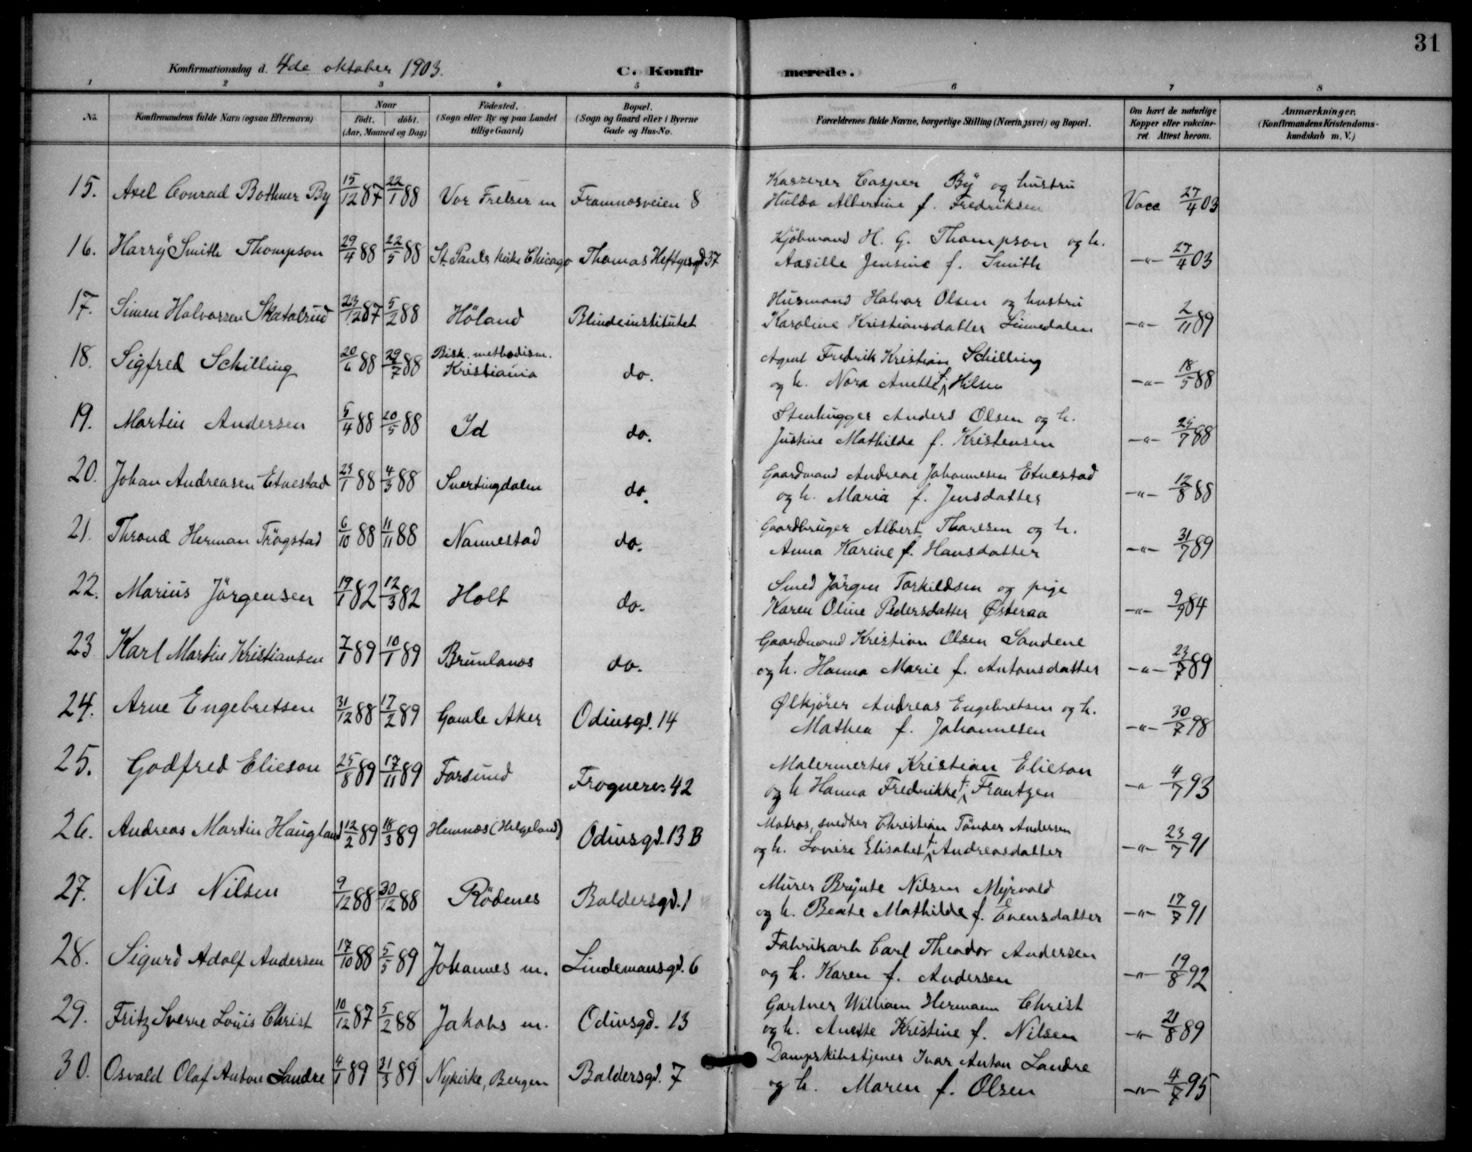 31
Konfirmationsdag d. 4de oktober 1903.
C. Konfirmerede.
1 2 3 4 5 6 7 8
No. Konfirmandens fulde Navn (ogsaa Efternavn) Naar født. døbt. (Aar, Maaned og Dag) Fødested. (Sogn eller By og paa Landet tillige Gaard) Bopæl. (Sogn og Gaard eller i Byerne Gade og Hus-No. Forældrenes fulde Navne, borgerlige Stilling (Næringsvei) og Bopæl. Om havt de naturlige Kopper eller vakcineret. Attest herom. Anmærkninger. (Konfirmandens Kristendomskundskab m. V.)
15. Axel Conrad Bothner By 15/12 87 22/1 88 Vor Frelser m Framnæsveien 8 Kasserer Casper By og hustru
Hulda Albertine f. Fredriksen Vacc 27/4 03
16. Harry Smith Thompson 29/4 88 22/5 88 St. Pauls kirke Chicago Thomas Heftyesgd 37 Kjøbmand H. G. Thompson og h.
Aasille Jensine f. Smith -"- 27/4 03
17. Simen Halvorsen Skatalsrud 23/12 87 5/2 88 Höland Blindeinstitutet Husmand Halvor Olsen og hustru
Karoline Kristiansdatter Linnedalen -"- 2/11 89
18. Sigfred Schilling 20/6 88 29/7 88 Bisk. methodism. Kristiania do. Agent Fredrik Kristian Schilling
og h. Nora Anette f. Hilsen -"- 18/5 88
19. Martin Andersen 5/4 88 20/5 88 Id do. Stenhugger Anders Olsen og h.
Justine Mathilde f. Kristensen -"- 25/7 88
20. Johan Andreasen Etnestad 23/1 88 4/3 88 Snertingdalen do. Gaardmand Andreas Johannesen Etnestad
og h. Maria f. Jensdatter -"- 12/8 88
21. Thrond Herman Trögstad 6/10 88 11/11 88 Nannestad do. Gaardbruger Albert Thoresen og h.
Anna Karine f. Hansdatter -"- 31/7 89
22. Marius Jörgensen 19/1 82 12/3 82 Holt do. Smed Jörgen Torkildsen og pige
Karen Oline Pedersdatter Østeraa -"- 9/9 84
23 Karl Martin Kristiansen 7/1 89 10/1 89 Brunlanæs do. Gaardmand Kristian Olsen Sandene
og h. Hanna Marie f. Antonsdatter -"- 23/7 89
24. Arne Engebretsen 31/12 88 17/2 89 Gamle Aker Odinsgd. 14 Ølkjører Andreas Engebretsen og h.
Mathea f. Johannesen -"- 30/7 98
25. Godfred Elieson 25/8 89 17/11 89 Farsund Frognerv 42 Malermester Kristian Elieson
og h Hanna Fredrikke f. Frantzen -"- 4/7 93
26. Andreas Martin Haugland 12/2 89 18/3 89 Hemnæs (Helgeland) Odinsgd. 13 B Matros, snedker Christian Tönder Andersen
og h. Lovise Elisabet f. Andreasdatter -"- 23/7 91
27. Nils Nilsen 9/12 88 30/12 88 Rödenes Baldersgd. 1 Murer Brynte Nilsen Myrvold
og h. Beate Mathilde f. Evensdatter -"- 17/7 91
28. Sigurd Adolf Andersen 17/10 88 5/5 89 Johannes m. Lindemansgd. 6 Fabrikarb Carl Theodor Andersen
og h. Karen f. Andersen -"- 19/8 92
29. Fritz Sverre Louis Christ 10/12 87 5/2 88 Jakobs m. Odinsgd. 13 Gartner William Hermann Christ
og h. Anette Kristine f. Nilsen -"- 21/8 89
30. Osvald Olaf Anton Landre 4/1 89 31/3 89 Nykirke, Bergen Baldersgd. 7 Dampskibstjener Ivar Anton Landre
og h. Maren f. Olsen -"- 4/7 95